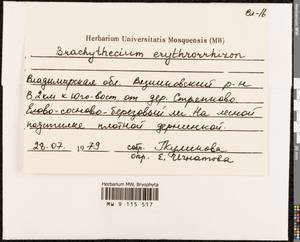 Вл-16
Herbarium Universitatis Mosquensis (MW)
Brachythecium erythrorrhizon
Владимирская обл. Вязниковский р-н
В 2 км к юго-вост. от дер.
Елово-сосново-березовый лес. На лесной
подстилке плотной дерниной.
28.07. 1979 собр.
опр. Е. Игнатова
Herbarium MW, Bryophyta
MW 9 115 517